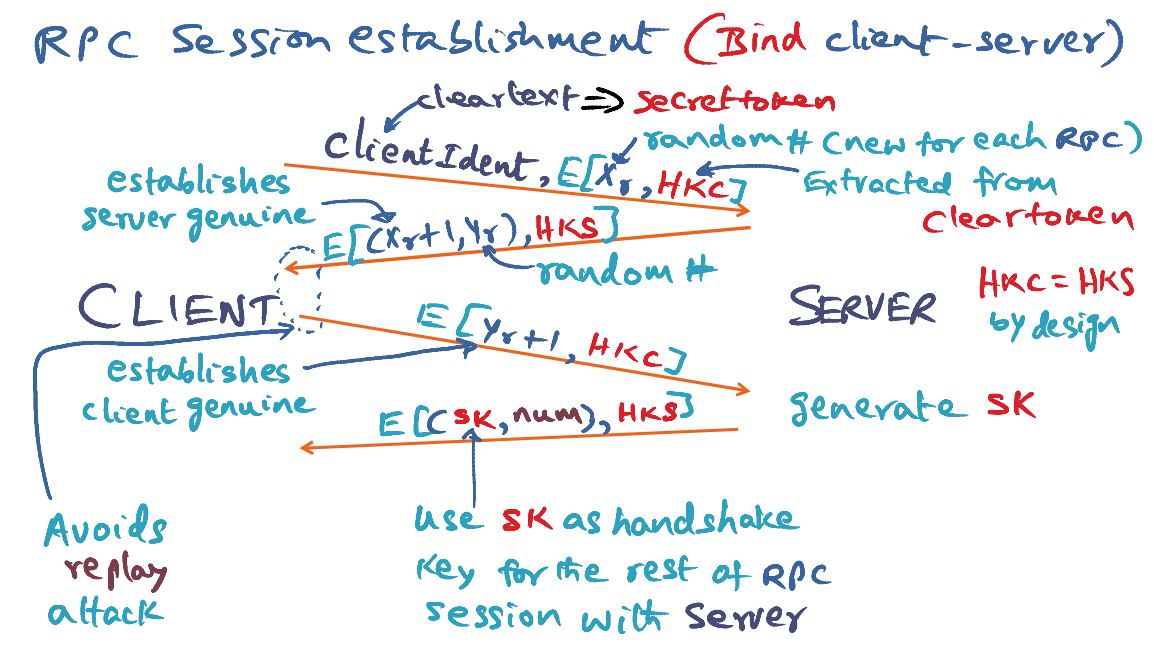 RPC Session establishment (Bind client-server)
cleartext ⇒ secrettoken
random # (new for each RPC)
ClientIdent, E[Xr, HKC]
Extracted from
cleartoken
establishes
server genuine
E[(Xr+1, Yr), HKS]
random #
CLIENT
SERVER
HKC = HKS
by design
E[Yr+1, HKC]
establishes
client genuine
generate SK
E[(SK, num), HKS]
Avoids
replay
attack
Use SK as handshake
key for the rest of RPC
session with Server